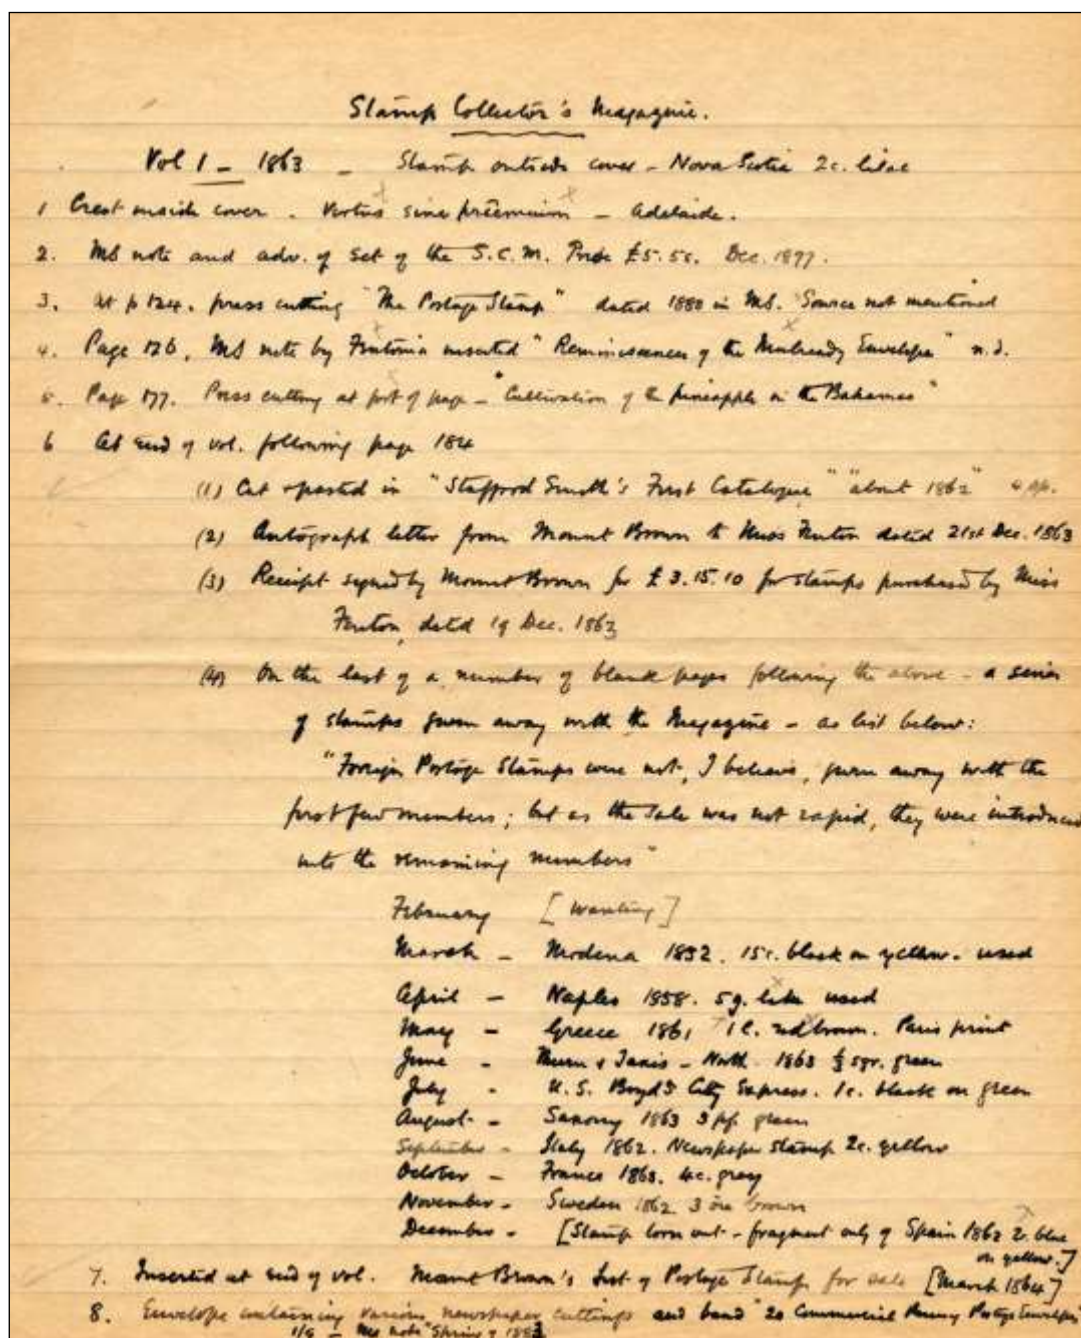 Stamp Collector's Magazine.
Vol 1 - 1863 - Stamp outside cover - Nova Scotia 2c. lilac
1 Crest inside cover. Virtus sine præmium - Adelaide.
2. MS note and adv. of set of the S.C.M. Price £5.5s. Dec. 1877.
3. At p 124. press cutting "The Postage Stamp" dated 1880 in MS. Source not mentioned
4. Page 126. MS note by Fentonia inserted "Reminiscences of the Mulready Envelope" n.d.
5. Page 177. Press cutting at foot of page - "Cultivation of the pineapple in the Bahamas"
6 At end of vol. following page 184
(1) Cat. pasted in "Stafford Smith's First Catalogue" "about 1862" 4 pp.
(2) Autograph letter from Mount Brown to Miss Fenton dated 21st Dec. 1863
(3) Receipt signed by Mount Brown for £3.15.10 for stamps purchased by Miss
Fenton, dated 19 Dec. 1863
(4) On the last of a number of blank pages following the above - a series
of stamps given away with the Magazine - as list below:
"Foreign Postage Stamps were not, I believe, given away with the
first few numbers; but as the sale was not rapid, they were introduced
into the remaining numbers"
February [wanting]
March - Modena 1852. 15c. black on yellow. used
April - Naples 1858. 5g. lake used
May - Greece 1861 1l. red brown. Paris print
June - Thurn & Taxis - North 1863 sgr. green
July - U.S. Boyd's City Express. 1c. black on green
August - Saxony 1863 3 pf. green
September - Italy 1862. Newspaper stamp 2c. yellow
October - France 1863. 4c. grey
November - Sweden 1862 3 öre brown
December - [Stamp torn out - fragment only of Spain 1862 2r. blue
on yellow.]
7. Inserted at end of vol. Mount Brown's List of Postage Stamps for sale [March 1864]
8. Envelope containing various newspaper cuttings and band "20 Commercial Penny Postage Envelopes
1/9 - MS note "Spring of 1883